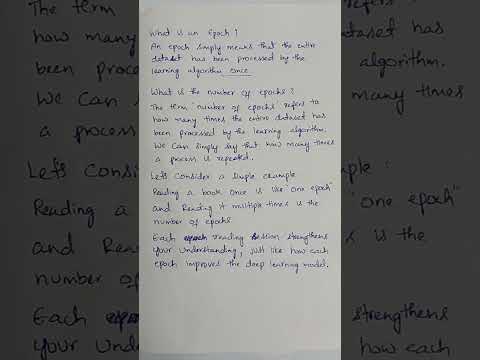 What is an Epoch?
An epoch simply means that the entire
dataset has been processed by the
learning algorithm once.
What is the number of epochs?
The term 'number of epochs' refers to
how many times the entire dataset has
been processed by the learning algorithm.
We can simply say that how many times
a process is repeated.
Let's Consider a simple example
Reading a book once is like "one epoch"
and Reading it multiple times is the
number of epochs.
Each reading session strengthens
your understanding, just like how each
epoch improves the deep learning model.